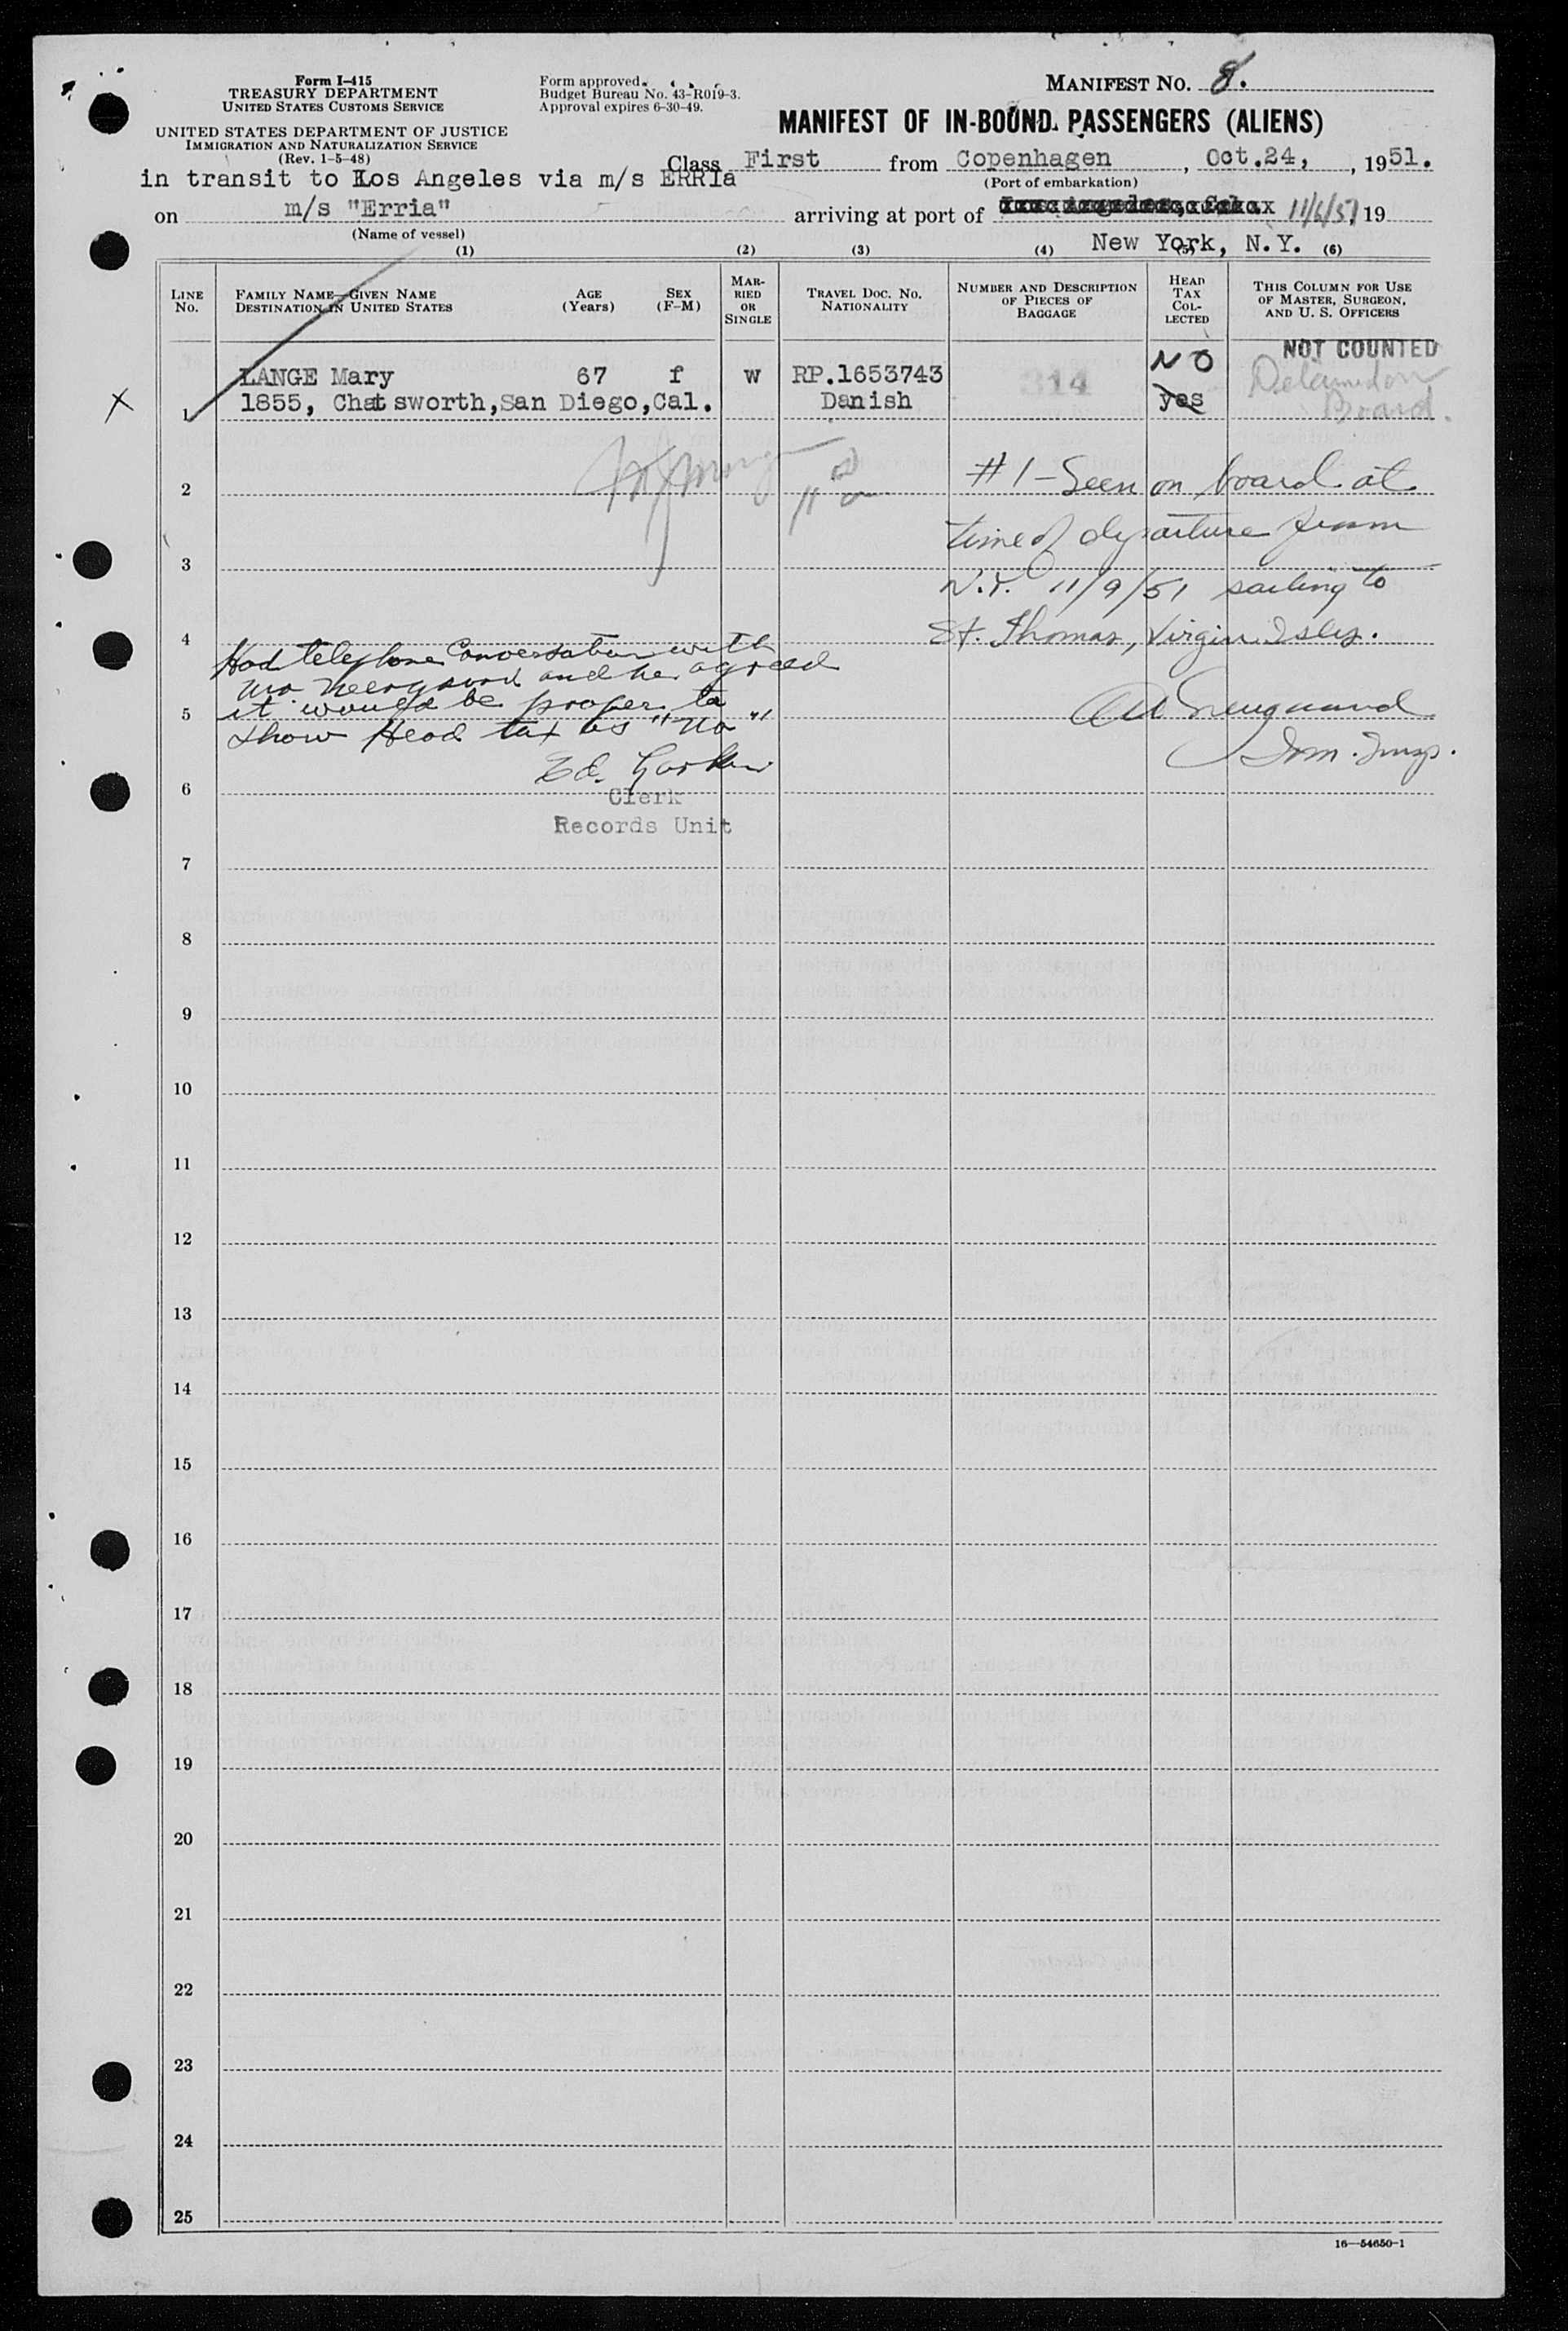 Form I-415
TREASURY DEPARTMENT
UNITED STATES CUSTOMS SERVICE
UNITED STATES DEPARTMENT OF JUSTICE
IMMIGRATION AND NATURALIZATION SERVICE
(Rev. 1-5-48)
Form approved.
Budget Bureau No. 43-R019-3.
Approval expires 6-30-49.
MANIFEST NO. 8.
MANIFEST OF IN-BOUND PASSENGERS (ALIENS)
Class First from Copenhagen, Oct.24, , 1951.
in transit to Los Angeles via m/s ERRIA
(Port of embarkation)
on m/s "Erria" arriving at port of 11/6/51, 19
(Name of vessel)
New York, N.Y.
(1) (2) (3) (4) (5) (6)
LINE No.
FAMILY NAME—GIVEN NAME
DESTINATION IN UNITED STATES
AGE (Years)
SEX (F-M)
MARRIED OR SINGLE
TRAVEL DOC. NO.
NATIONALITY
NUMBER AND DESCRIPTION OF PIECES OF BAGGAGE
HEAD TAX COLLECTED
THIS COLUMN FOR USE OF MASTER, SURGEON, AND U. S. OFFICERS
NOT COUNTED
LANGE Mary 67 f w RP.1653743 314 NO
1 1855, Chatsworth,San Diego,Cal. Danish yes
Board.
2 #1 - Seen on board at
time of departure from
3
N.Y. 11/9/51 sailing to
4 St. Thomas, Virgin Isles.
Had telephone Conversation with
and he agreed
it would be proper to
5
show Head tax as "No"
Imm. Insp.
Ed.
6
Clerk
Records Unit
7
8
9
10
11
12
13
14
15
16
17
18
19
20
21
22
23
24
25
16—54650-1